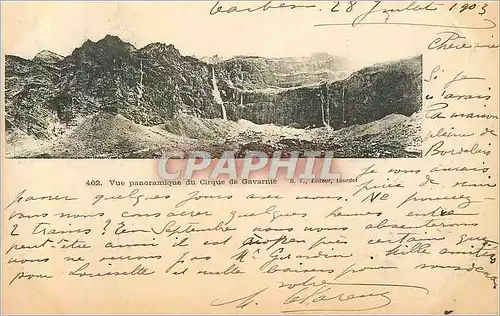 Tarbes, 28 Juillet 1903
Chère amie
Si je
n'avais
la maison
pleine de
Bordelais
je vous aurais
462. Vue panoramique du Cirque de Gavarnie D. T., Editeur, Lourdes
CPHPA
priée de venir
passer quelques jours avec nous. Ne pouvez-
vous nous consacrer quelques heures entre
2 trains? En Septembre nous nous absenterons
peut-être aussi il est à peu près certain que
nous ne verrons pas Mr
mille amitiés
pour Louisette et mille baisers pour vous de
votre